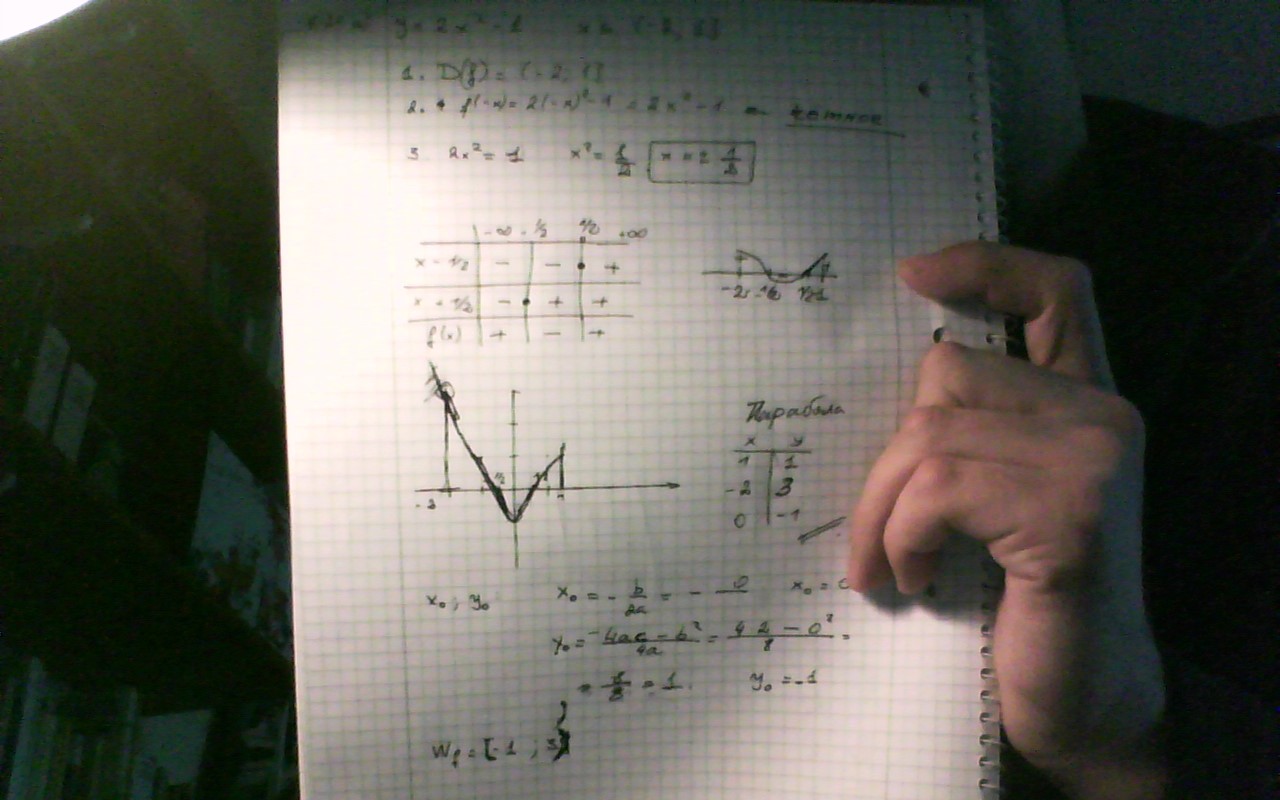 y = 2x² - 1
1. D(f) = (-2; 1]
2. f(-x) = 2(-x)² - 1 = 2x² - 1 - четное
3 2x² = 1 x² = 1/2 x = ± 1/2
-∞ -1/2 1/2 +∞
x - 1/2 - - +
x + 1/2 - + +
f(x) + - +
-2 -1/2 1/2 1
-2 1/2
Парабола
x y
1 1
-2 3
0 -1
x₀; y₀ x₀ = - b/2a = - 0 x₀ = 0
y₀ = -4ac - b²/4a = 4 2 - 0²/8 =
= 8/8 = 1. y₀ = -1
W_f = [-1 ; 3)